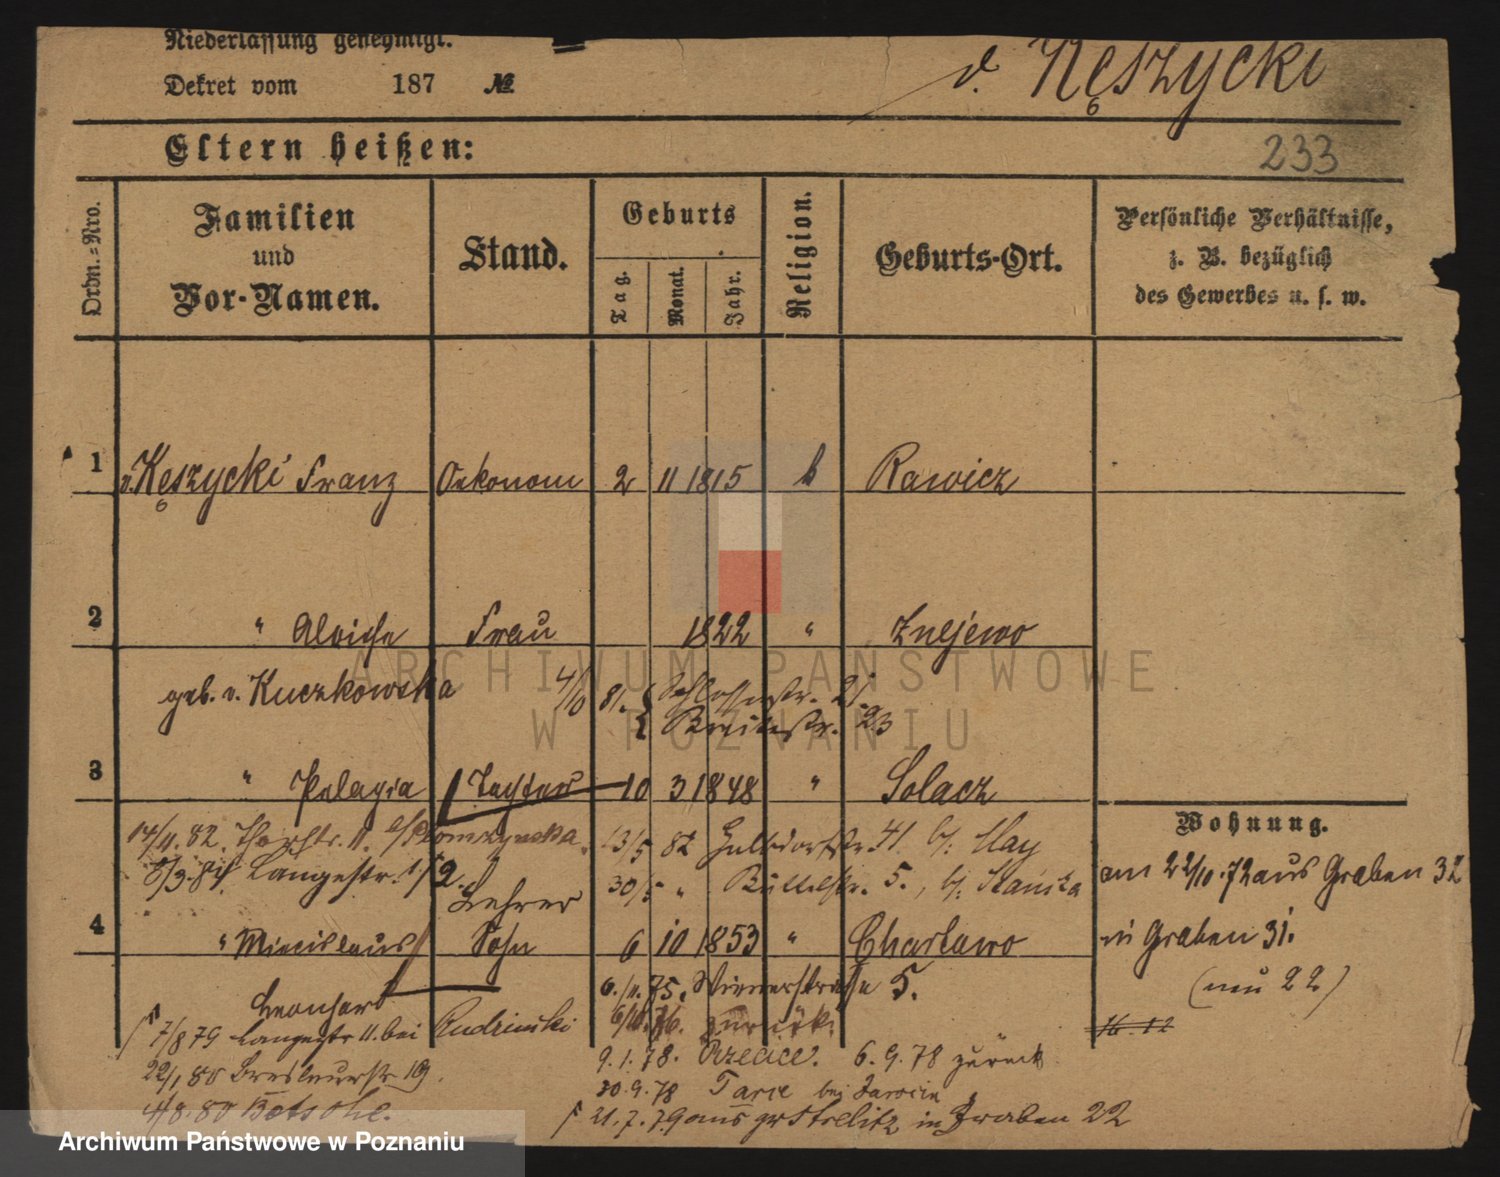 Niederlassung genehmigt.
Dekret vom 187 №
v. Kęszycki
Eltern heißen:
233
Ordn.-Nro.
Familien
und
Vor-Namen.
Stand.
Geburts
Tag.
Monat.
Jahr.
Religion.
Geburts-Ort.
Persönliche Verhältnisse,
z. B. bezüglich
des Gewerbes u. s. w.
1 v. Kęszycki Franz Oekonom 2 11 1815 k Rawicz
2 " Aloisa Frau 1822 " Znejewo
geb. v. Kuczkowska 4/10 81. Schlosserstr. 21
Breitestr. 23
3 " Pelagia Tochter 10 3 1848 " Solacz
14/11. 82. 11. 13/5 82 41. b/. May
8/3. 84 Langestr. 30/5 " Büttelstr. 5., b/.
Lehrer
4 " Miecislaus Sohn 6 10 1853 " Chartowo
Wohnung.
am 22/10.72 aus Graben 32
in Graben 31.
(neu 22)
16 12
Leonhard
6./11. 75. Wienerstraße 5.
76. zurück.
7/8 79 Langestr 11. bei Rudzinski
9.1.78. 6.9.78 zurück
22/1 80 Breslauerstr 19.
20.9.78 bei Jarocin
8.80
21.7.79 aus gr Strelitz in Graben 22
ARCHIWUM PAŃSTWOWE
W POZNANIU
Archiwum Państwowe w Poznaniu